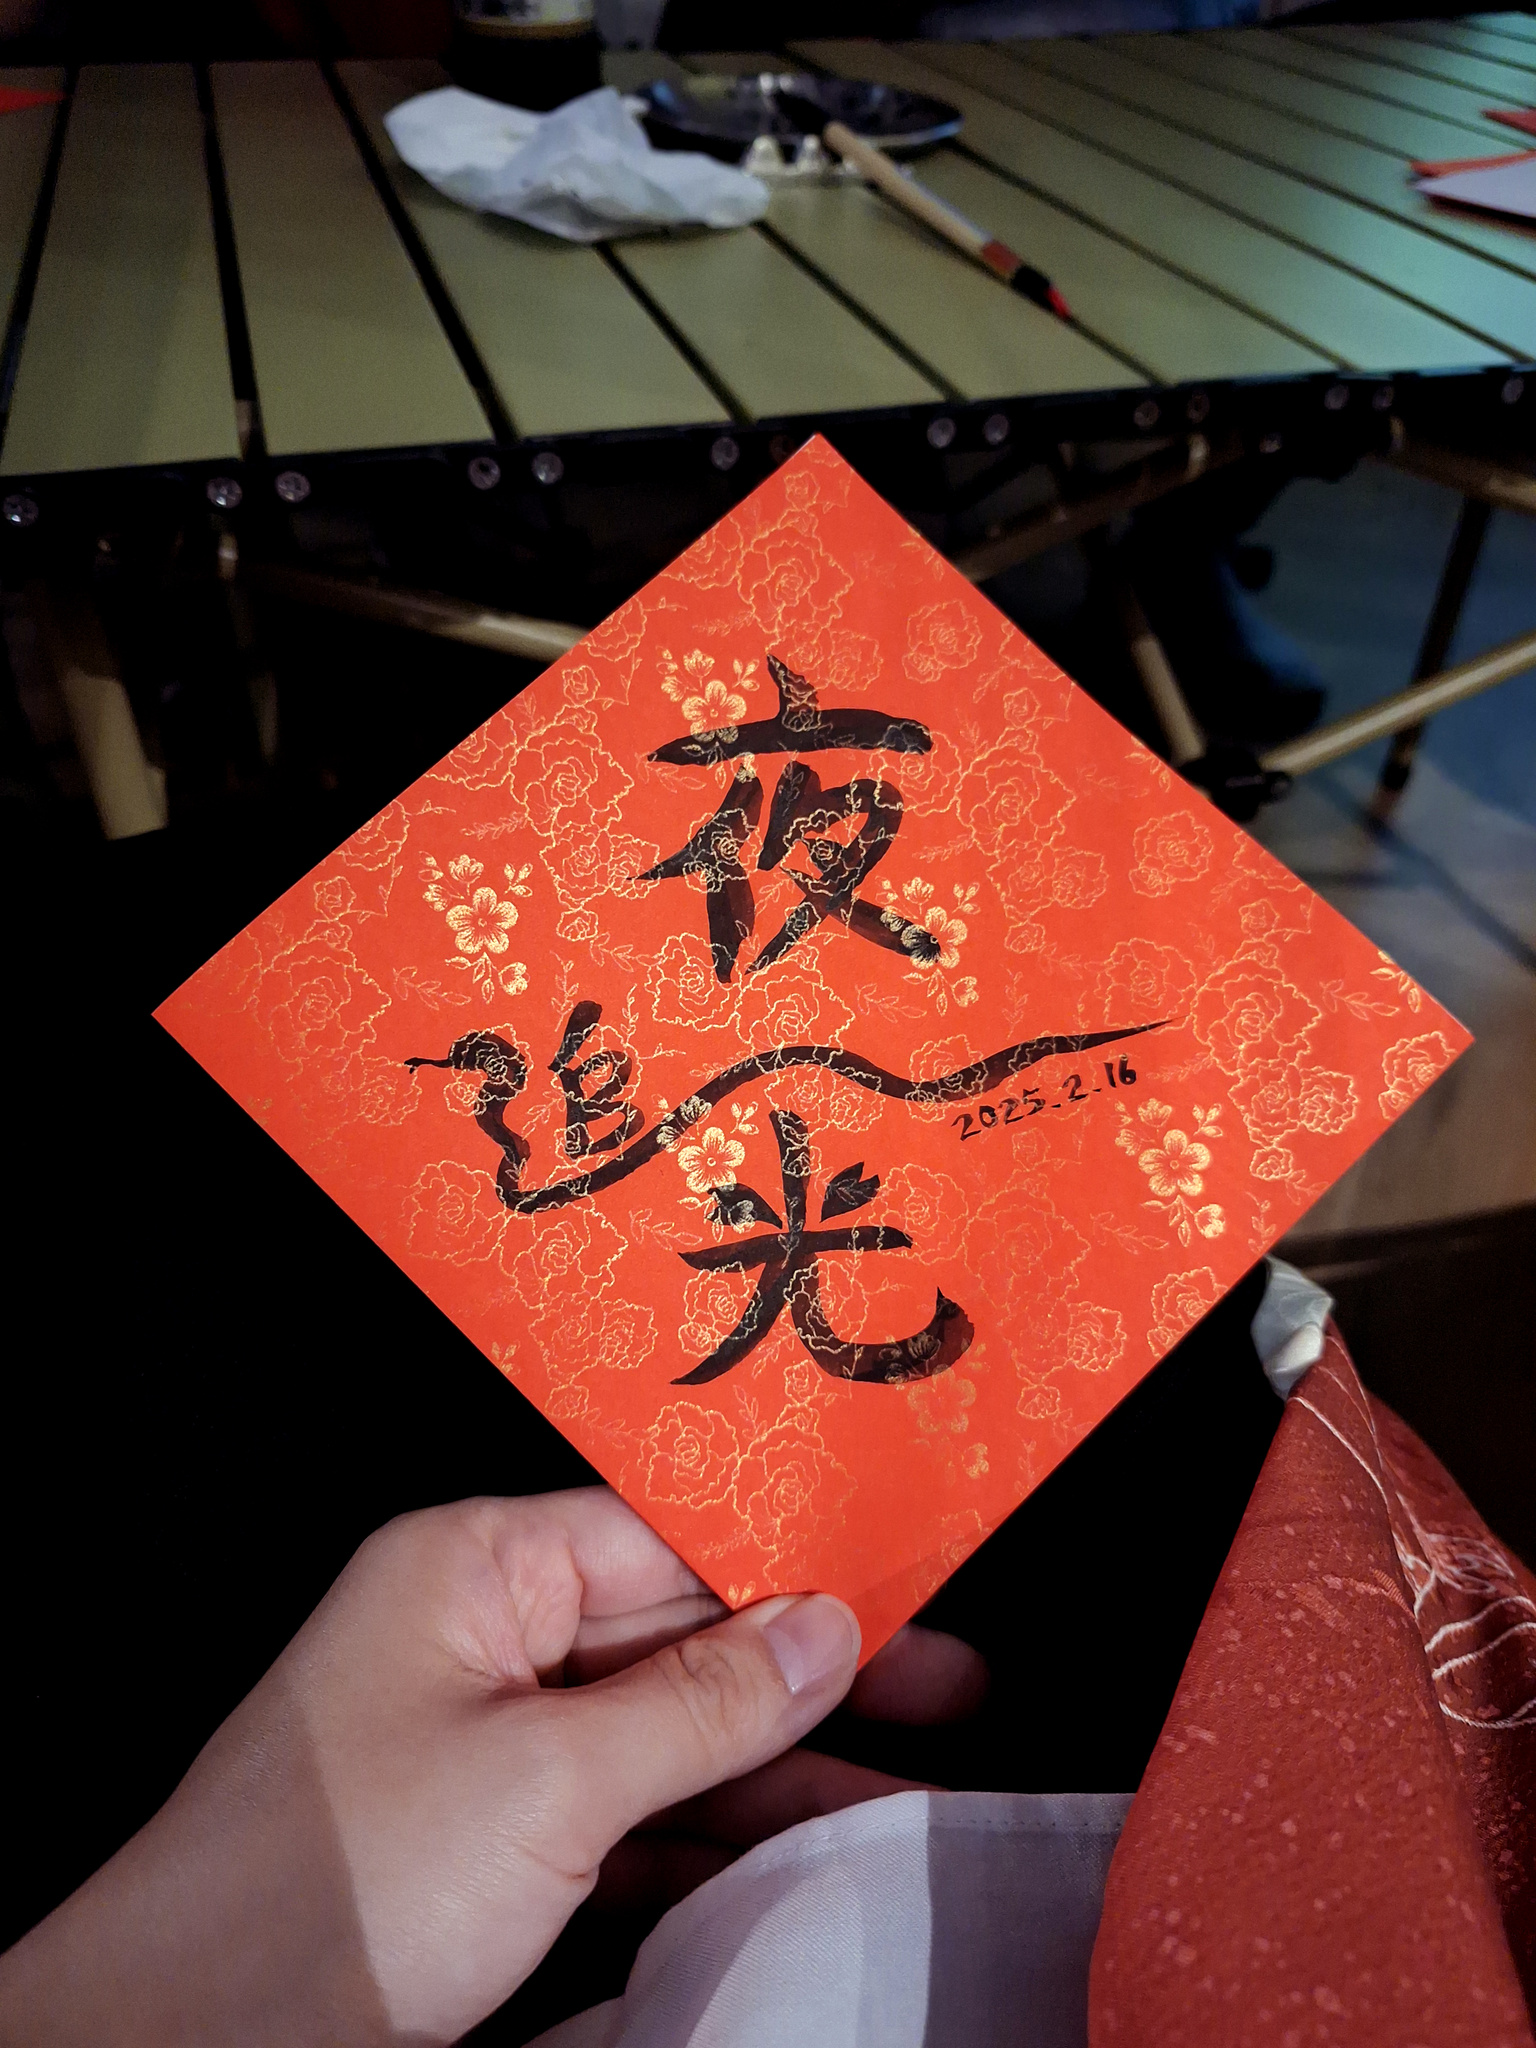 夜
追
光
2025.2.16